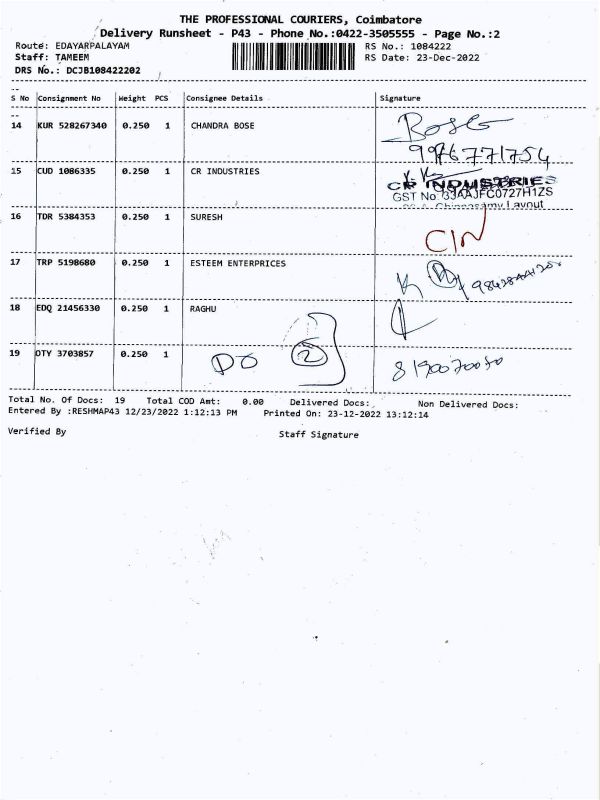 THE PROFESSIONAL COURIERS, Coimbatore
Delivery Runsheet - P43 - Phone No.:0422-3505555 - Page No.:2
Route: EDAYARPALAYAM RS No.: 1084222
Staff: TAMEEM RS Date: 23-Dec-2022
DRS No.: DCJB108422202
S No Consignment No Weight PCS Consignee Details Signature
14 KUR 528267340 0.250 1 CHANDRA BOSE Bose
9976771754
15 CUD 1086335 0.250 1 CR INDUSTRIES
CR INDUSTRIES
GST No. 33AAJFC0727H1ZS
Layout
16 TDR 5384353 0.250 1 SURESH
17 TRP 5198680 0.250 1 ESTEEM ENTERPRICES
18 EDQ 21456330 0.250 1 RAGHU
19 OTY 3703857 0.250 1 DO 2 8190070050
Total No. Of Docs: 19 Total COD Amt: 0.00 Delivered Docs: Non Delivered Docs:
Entered By :RESHMAP43 12/23/2022 1:12:13 PM Printed On: 23-12-2022 13:12:14
Verified By Staff Signature